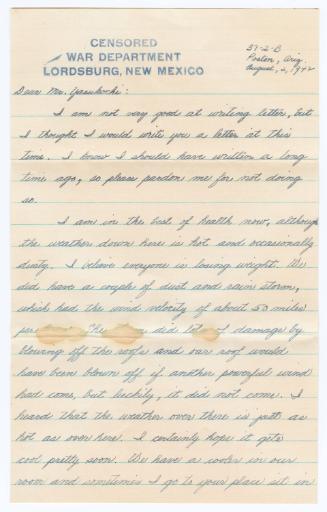 CENSORED
WAR DEPARTMENT
LORDSBURG, NEW MEXICO
37-2-B
Poston, Ariz.
August, 2, 1942
Dear Mr.
I am not very good at writing letter, but
I thought I would write you a letter at this
time. I know I should have written a long
time ago, so please pardon me for not doing
so.
I am in the best of health now, although
the weather down here is hot and occasionally
dusty. I believe everyone is losing weight. We
did have a couple of dust and rain storm,
which had the wind velocity of about 50 miles
per The did lots of damage by
blowing off the roofs and our roof would
have been blown off if another powerful wind
had come, but luckily, it did not come. I
heard that the weather over there is just as
hot as over here. I certainly hope it gets
cool pretty soon. We have a cooler in our
room and sometimes I go to your place sit in